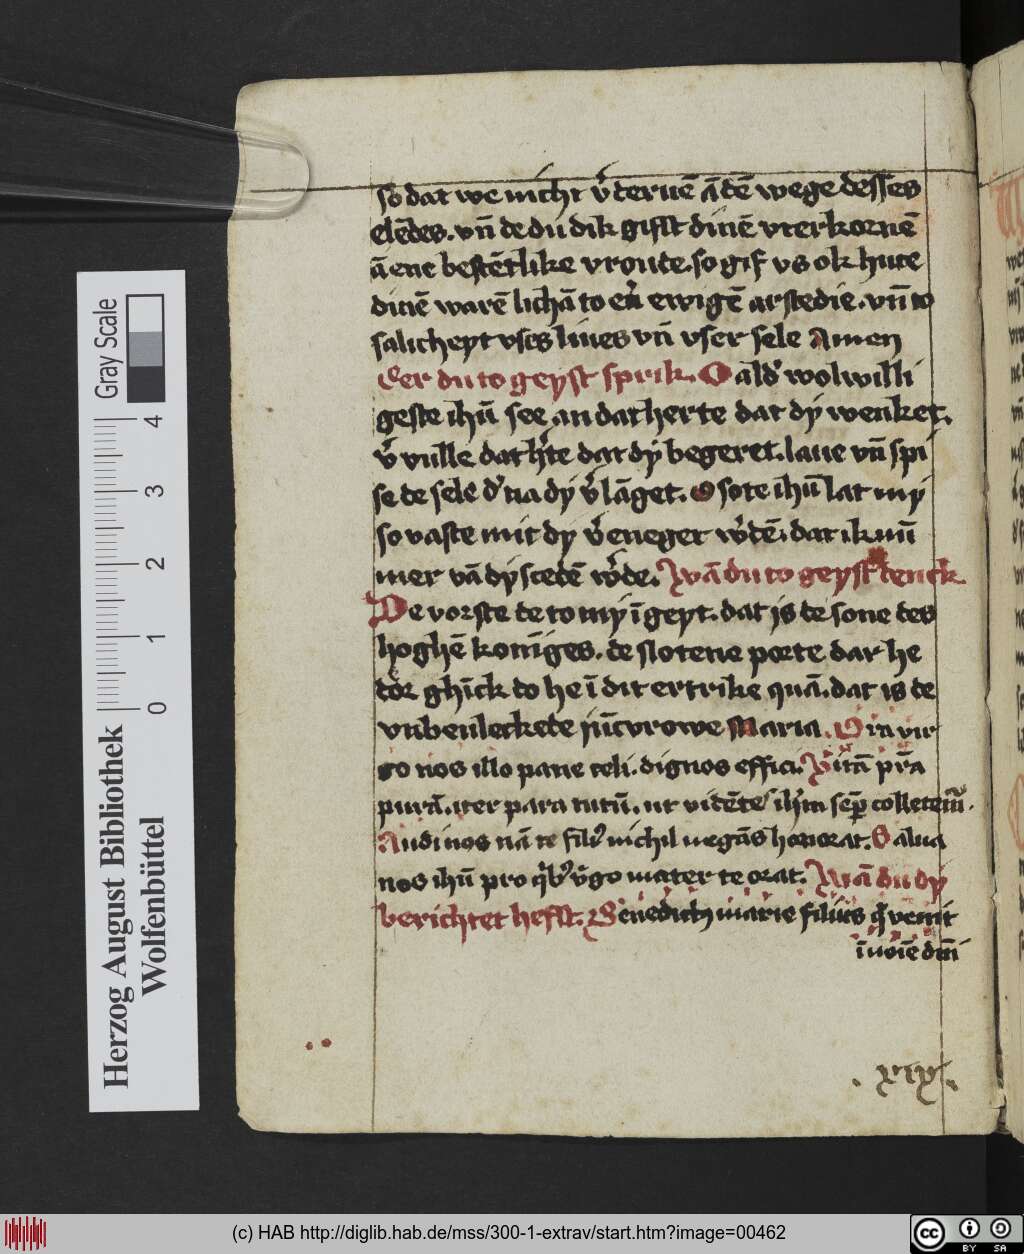 so dat we nicht v᷎ deruē ā dē wege desses
elēdes. vn̄ de du dik gifft dinē vterkornē
ā ene bestētlike vroude. so gif vs ok hute
dinē warē lichā to en᷎ ewigē arstedie. vn̄ to
salicheyt vses liues vn̄ vser sele Amen
Eer du to geyst sprik. O ald᷎ wolwilli
geste ihū see an dat herte dat dy wenket.
v᷎ vulle dat h᷎te dat dy begeret. laue vn̄ spi
se de sele d᷎ na dy v᷎lāget. O sote ihū lat my
so vaste mit dy v᷎eneget w᷎dē. dat ik nū
mer vā dy scedē w᷎de. Wā du to geyst denck
De vorste de to my ī geyt. dat is de sone des
hoghē konīges. de slotene porte dar he
dor ghīck do he ī dit ertrike quā. dat is de
vnbeuleckede iūcvrowe Maria. O ia vir
go nos illo pane celi. dignos effici. Vitā pr̄a
purā. iter para tutū. ut vidēte ihm sep̄ colletem̄.
Audi nos nā te fili᷎ nichil negās honorat. Salua
nos ihū pro q̄b᷎ v̄go mater te orat. Wā du dy
berichtet hefst. Benedict᷎ marie filius q̄ venit
ī noīe dn̄i
. xix.
Gray Scale
0 1 2 3 4
Herzog August Bibliothek
Wolfenbüttel
(c) HAB http://diglib.hab.de/mss/300-1-extrav/start.htm?image=00462
cc BY SA